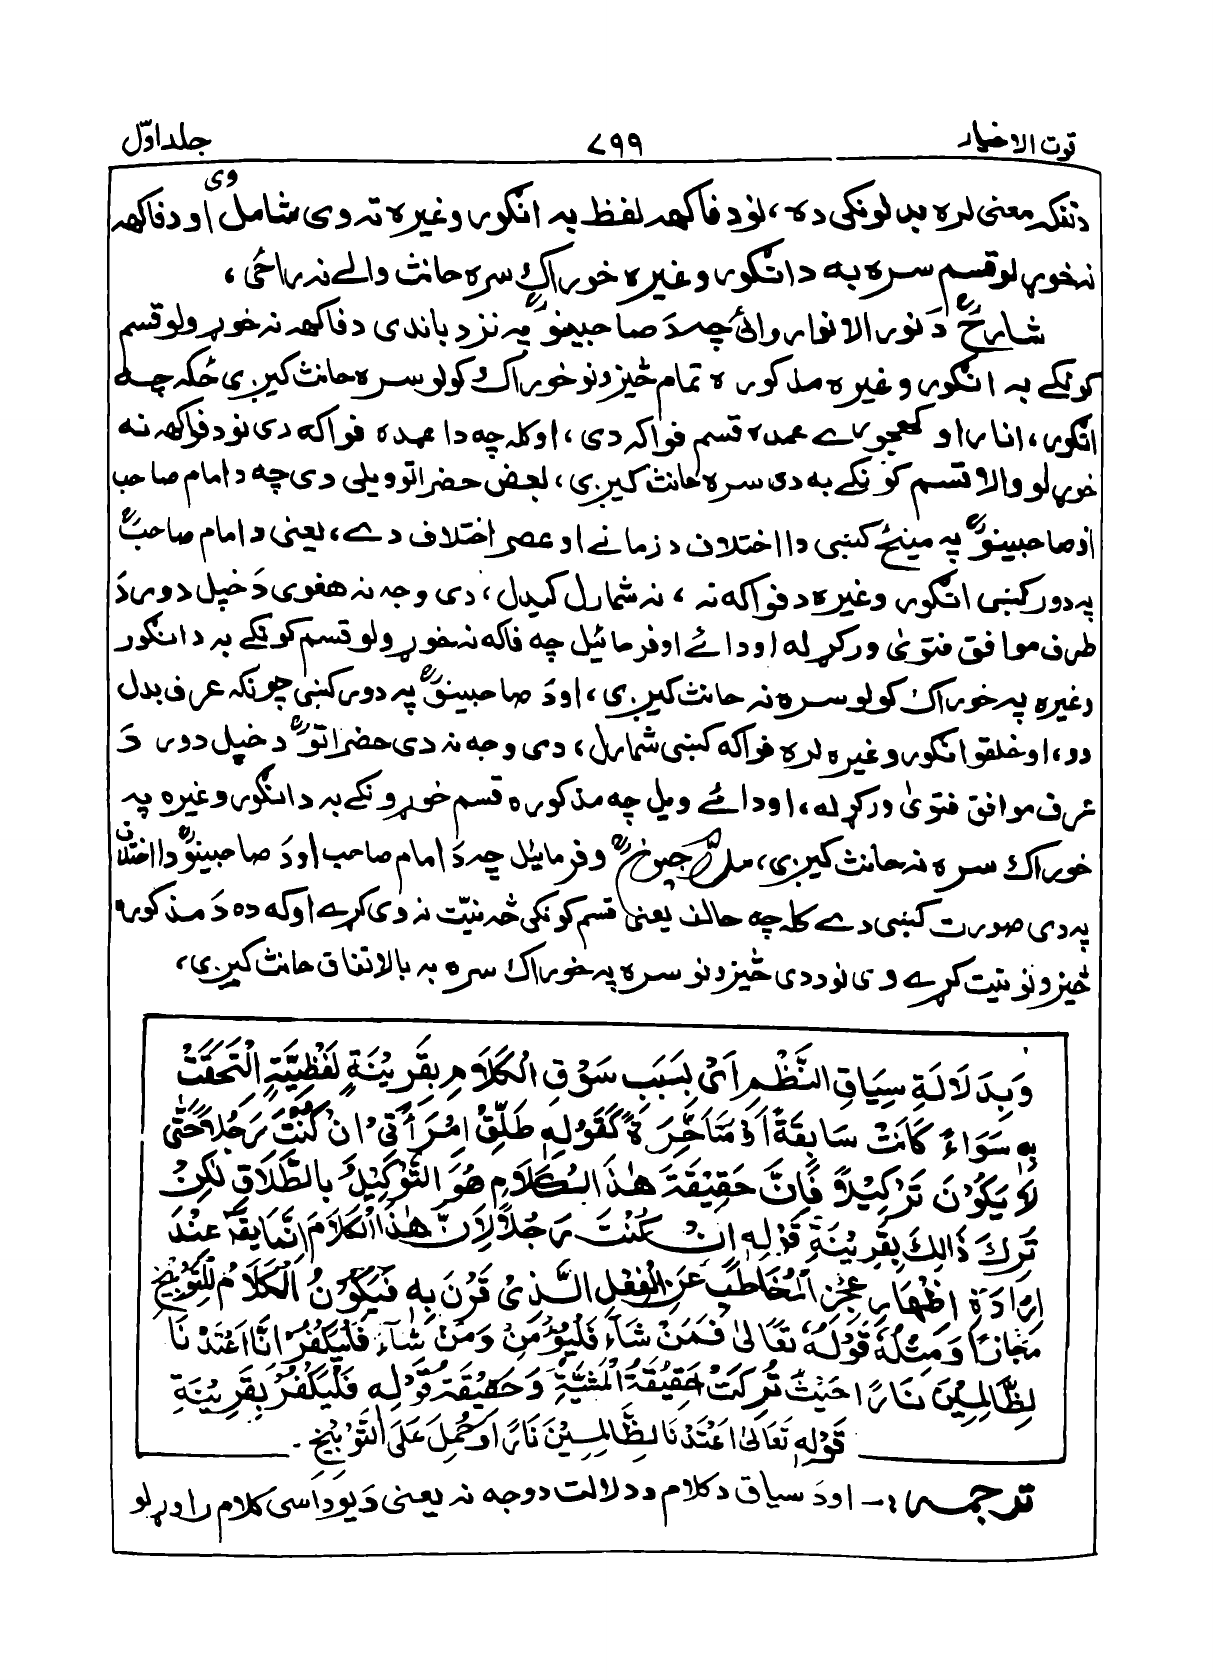 قوت الاخیار ۷۹۹ جلد اوّل
دتفکہ معنی لرہ بدلونکی دہ، نو د فاکهہ لفظ بہ انگور وغیرہ تہ وی شامل وی او د فاکهہ
نہ خوړلو قسم سرہ بہ د انگور وغیرہ خوراک سرہ حانث والے نہ راځی،
شارحؒ د نور الانوار وائی چہ د صاحبینوؒ پہ نزد باندی د فاکهہ نہ خوړولو قسم
کونکے بہ انگور وغیرہ مذکورہ تمام څیزونو خوراک کولو سرہ حانث کیږی ځکہ چہ
انگور، انار او کهجورے عمدہ قسم فواکہ دی، او کلہ چہ دا عمدہ فواکہ دی نو د فواکهہ نہ
خوړلو والا قسم کونکے بہ دی سرہ حانث کیږی، بعض حضراتو ویلی دی چہ د امام صاحب
او صاحبینوؒ پہ مینځ کښی دا اختلاف د زمانے او عصر اختلاف دے، یعنی د امام صاحبؒ
پہ دور کښی انگور وغیرہ د فواکہ نہ، نہ شمارل کیدل، دی وجہ نہ هغوی دَ خپل دور دَ
طرف موافق فتویٰ ورکړلہ او دائے اوفرمائیل چہ فاکہ نہ خوړولو قسم کونکے بہ د انگور
وغیرہ پہ خوراک کولو سرہ نہ حانث کیږی، او دَ صاحبینوؒ پہ دور کښی چونکہ عرف بدل
وو، او خلقو انگور وغیرہ لرہ فواکہ کښی شمارل، دی وجہ نہ دی حضراتوؒ د خپل دور دَ
عرف موافق فتویٰ ورکړلہ، او دائے ویل چہ مذکورہ قسم خوړونکے بہ د انگور وغیرہ پہ
خوراک سرہ نہ حانث کیږی، ملا جیونؒ وفرمایل چہ دَ امام صاحب او دَ صاحبینوؒ دا اختلاف
پہ دی صورت کښی دے کلہ چہ حالف یعنی قسم کونکی څہ نیّت نہ وی کړے او کہ دہ دَ مذکورہ
څیزونو نیت کړے وی نو د دی څیزونو سرہ پہ خوراک سرہ بہ بالاتفاق حانث کیږی،
وَبِدَلَالَةِ سِيَاقِ النَّظْمِ اَىْ بِسَبَبِ سَوْقِ الْكَلَامِ بِقَرِيْنَةٍ لَفْظِيَّةٍ اِلْتَحَقَتْ
بِهٖ سَوَاءٌ كَانَتْ سَابِقَةً اَوْ مُتَأَخِّرَةً كَقَوْلِهٖ طَلِّقْ اِمْرَأَتِىْ اِنْ كُنْتَ رَجُلًا حَتّٰى
لَا يَكُوْنَ تَوْكِيْلًا فَاِنَّ حَقِيْقَةَ هٰذَا الْكَلَامِ هُوَ التَّوْكِيْلُ بِالطَّلَاقِ لٰكِنْ
تُرِكَ ذٰلِكَ بِقَرِيْنَةِ قَوْلِهٖ اِنْ كُنْتَ رَجُلًا لِاَنَّ هٰذَا الْكَلَامَ اِنَّمَا يُقَالُ عِنْدَ
اِرَادَةِ اِظْهَارِ عَجْزِ الْمُخَاطَبِ عَنِ الْفِعْلِ الَّذِىْ قَرُنَ بِهٖ فَيَكُوْنُ الْكَلَامُ لِلتَّوْبِيْخِ
مَجَازًا وَمِثْلُهٗ قَوْلُهٗ تَعَالٰى فَمَنْ شَآءَ فَلْيُؤْمِنْ وَمَنْ شَآءَ فَلْيَكْفُرْ اِنَّا اَعْتَدْنَا
لِظّٰلِمِيْنَ نَارًا حَيْثُ تُرِكَتْ حَقِيْقَةُ الْمَشِيَّةِ وَحَقِيْقَةُ قَوْلِهٖ فَلْيَكْفُرْ بِقَرِيْنَةِ
قَوْلِهٖ تَعَالٰى اَعْتَدْنَا لِظّٰلِمِيْنَ نَارًا وَحُمِلَ عَلَى التَّوْبِيْخِ۔
ترجمہ:۔ او دَ سیاق د کلام د دلالت د وجہ نہ یعنی دَ یو داسی کلام راوړلو